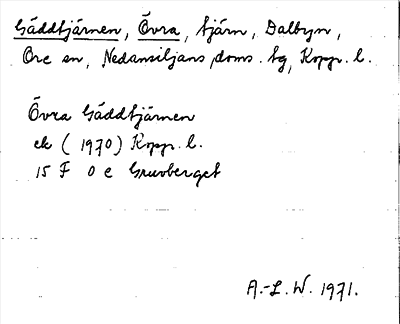 Gäddtjärnen, Övra, tjärn, Dalbyn,
Ore sn, Nedansiljans doms. tg, Kopp. l.
Övra Gäddtjärnen
ek (1970) Kopp. l.
15 F 0 e Gruvberget
A.-L. W. 1971.